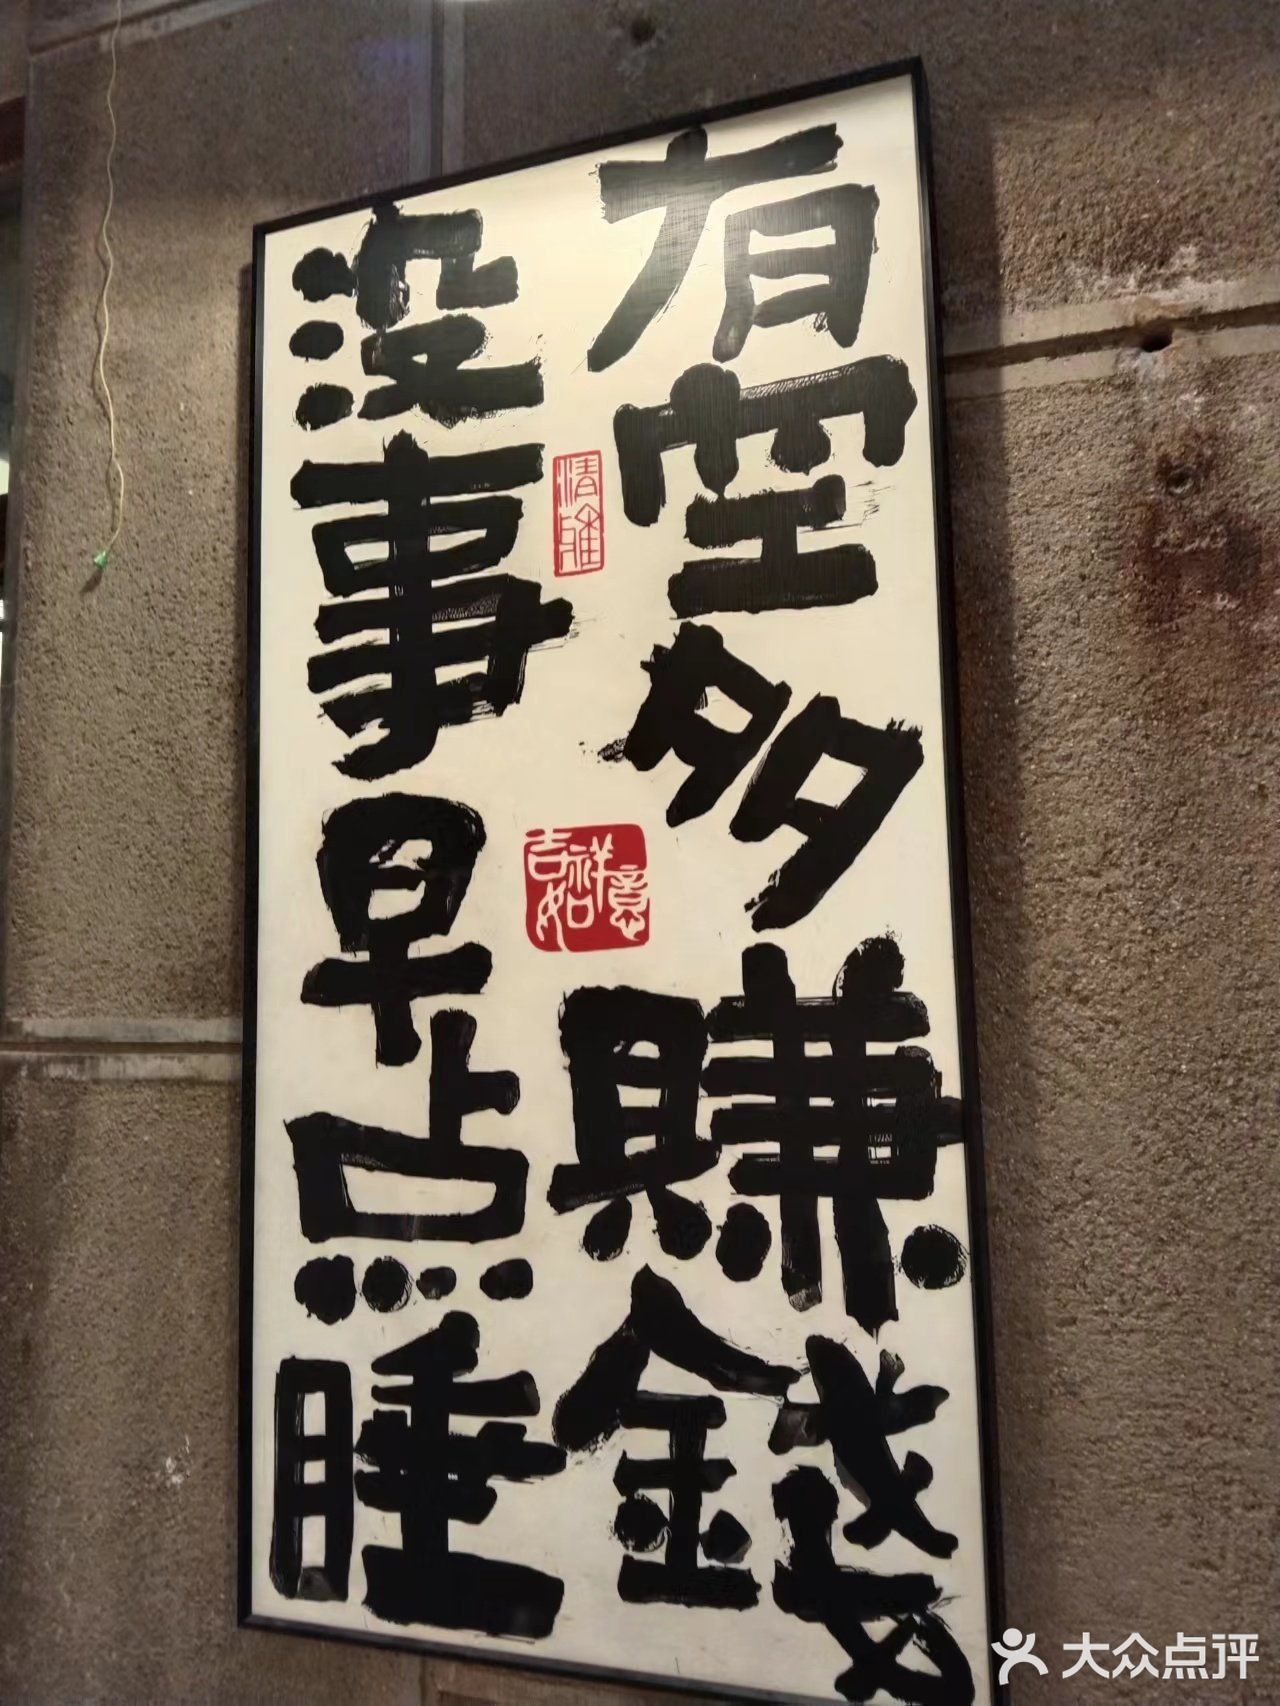 有空多賺錢
没事早点睡
清雅
吉祥如意
大众点评